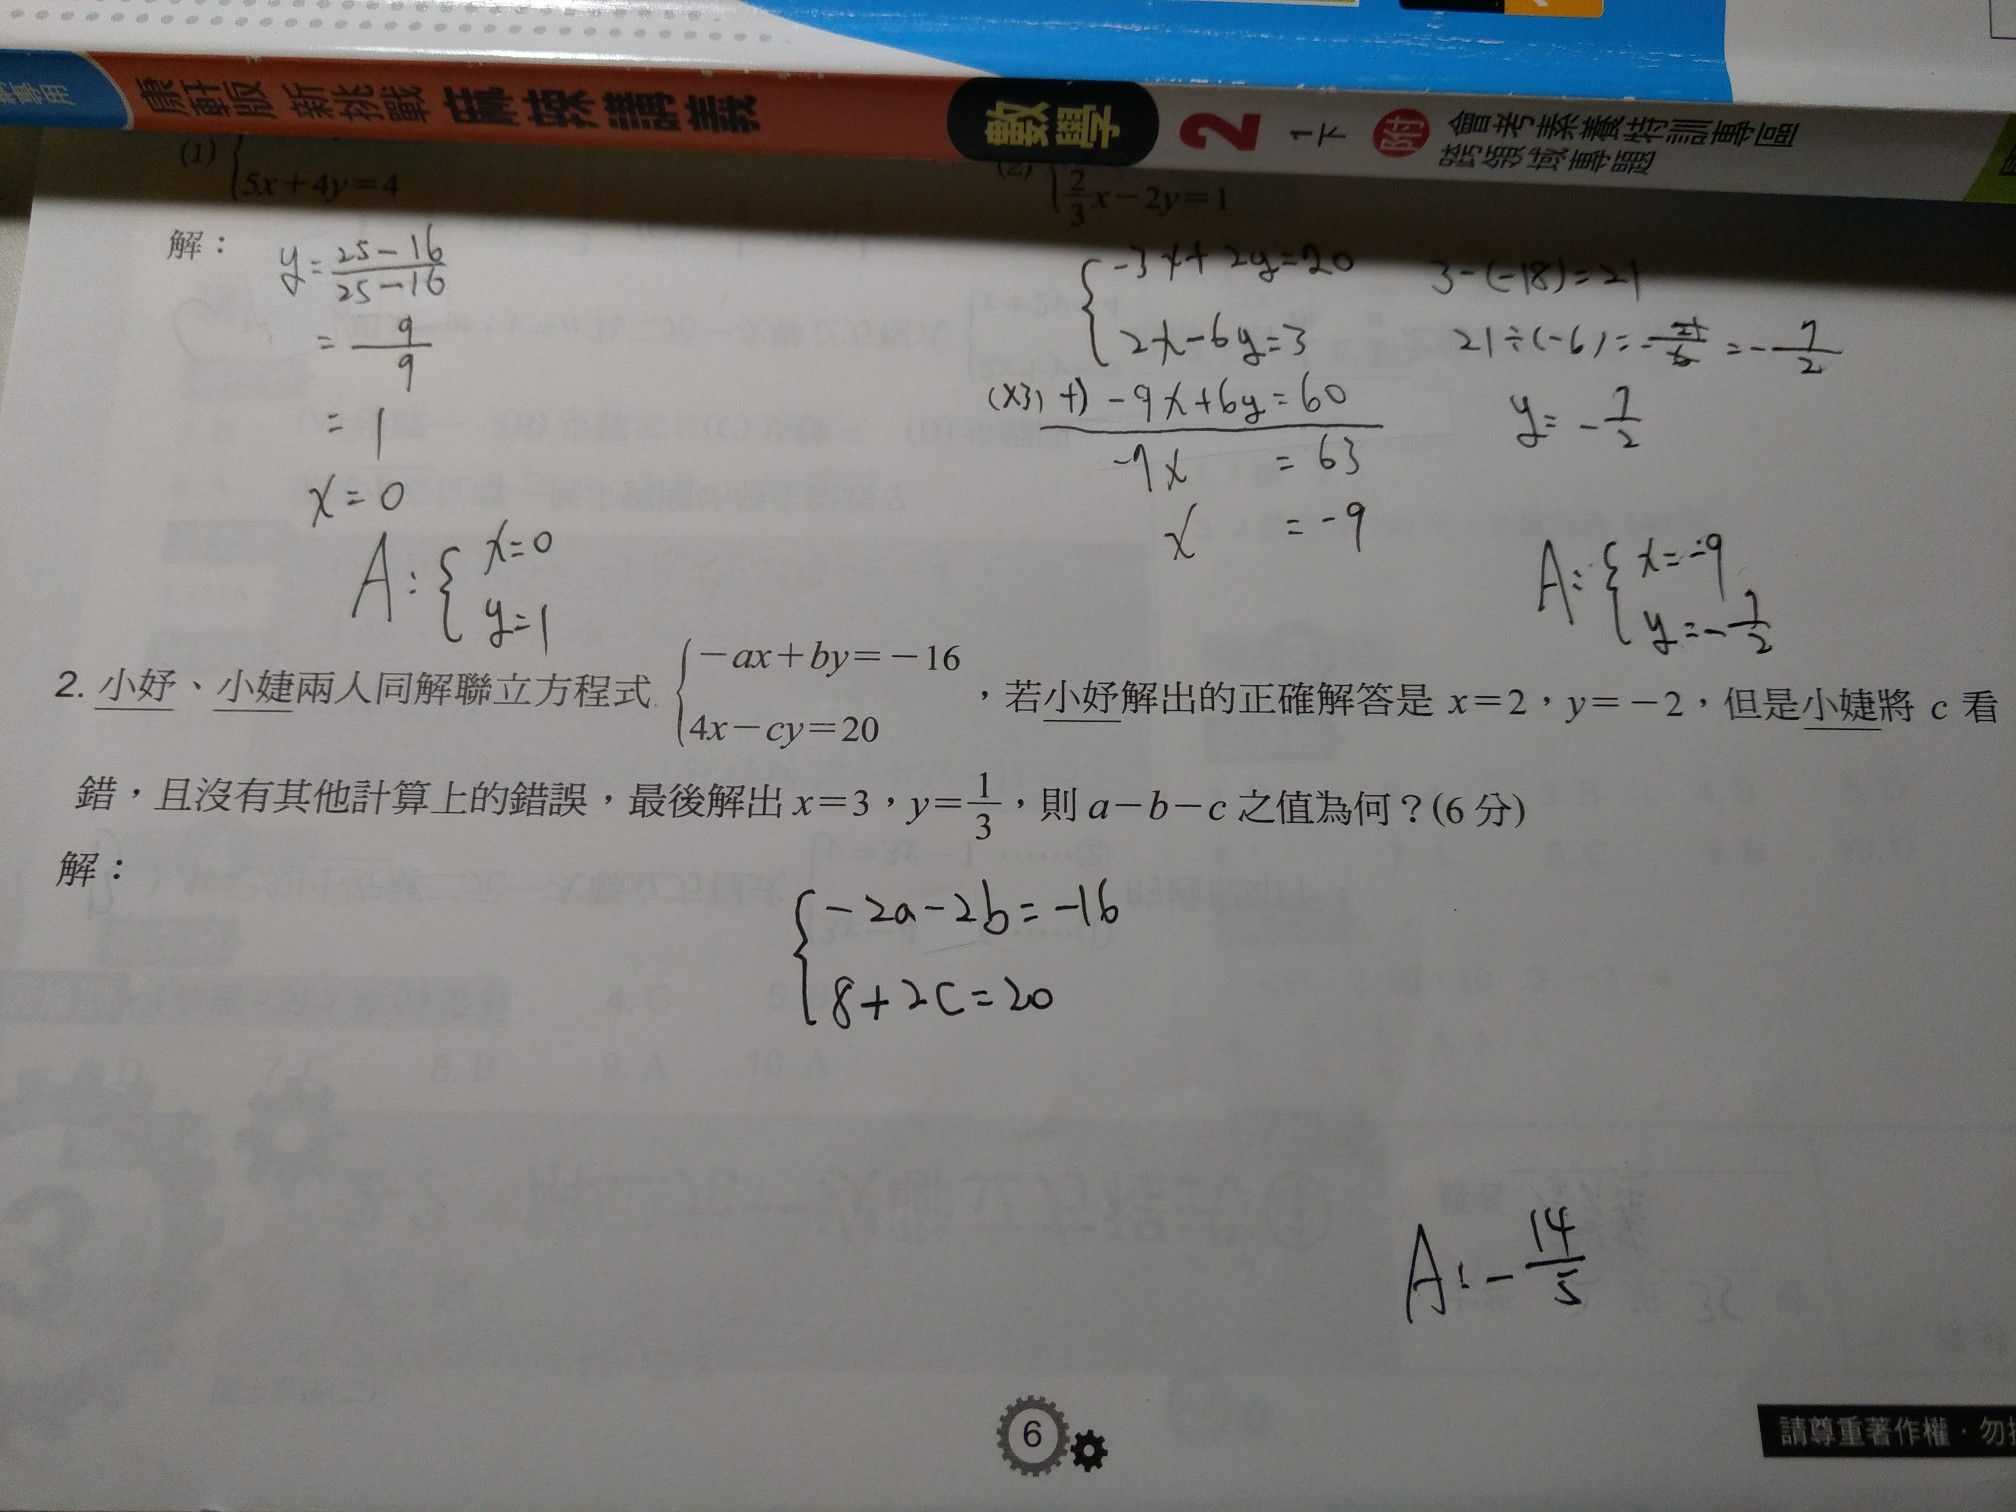 專用
康軒版 新挑戰 麻辣講義 數學 2 1下 附 會考素養特訓專區
跨領域專題
(1)
5x+4y=4
(2)
2/3x-2y=1
解：
y=25-16/25-16
=9/9
=1
x=0
A:{x=0
y=1
{-3x+2y=20
2x-6y=3
(x3, +) -9x+6y=60
-7x =63
x =-9
3-(-18)=21
21÷(-6)=-21/6=-7/2
y=-7/2
A:{x=-9
y=-7/2
2. 小妤、小婕兩人同解聯立方程式{-ax+by=-16
4x-cy=20，若小妤解出的正確解答是 x=2，y=-2，但是小婕將 c 看
錯，且沒有其他計算上的錯誤，最後解出 x=3，y=1/3，則 a-b-c 之值為何？(6 分)
解：
{-2a-2b=-16
8+2c=20
A:-14/5
6
請尊重著作權·勿